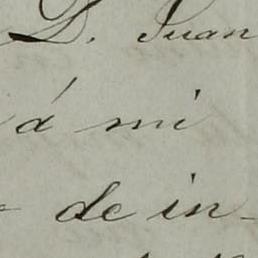 D. Juan
á mi
de in-